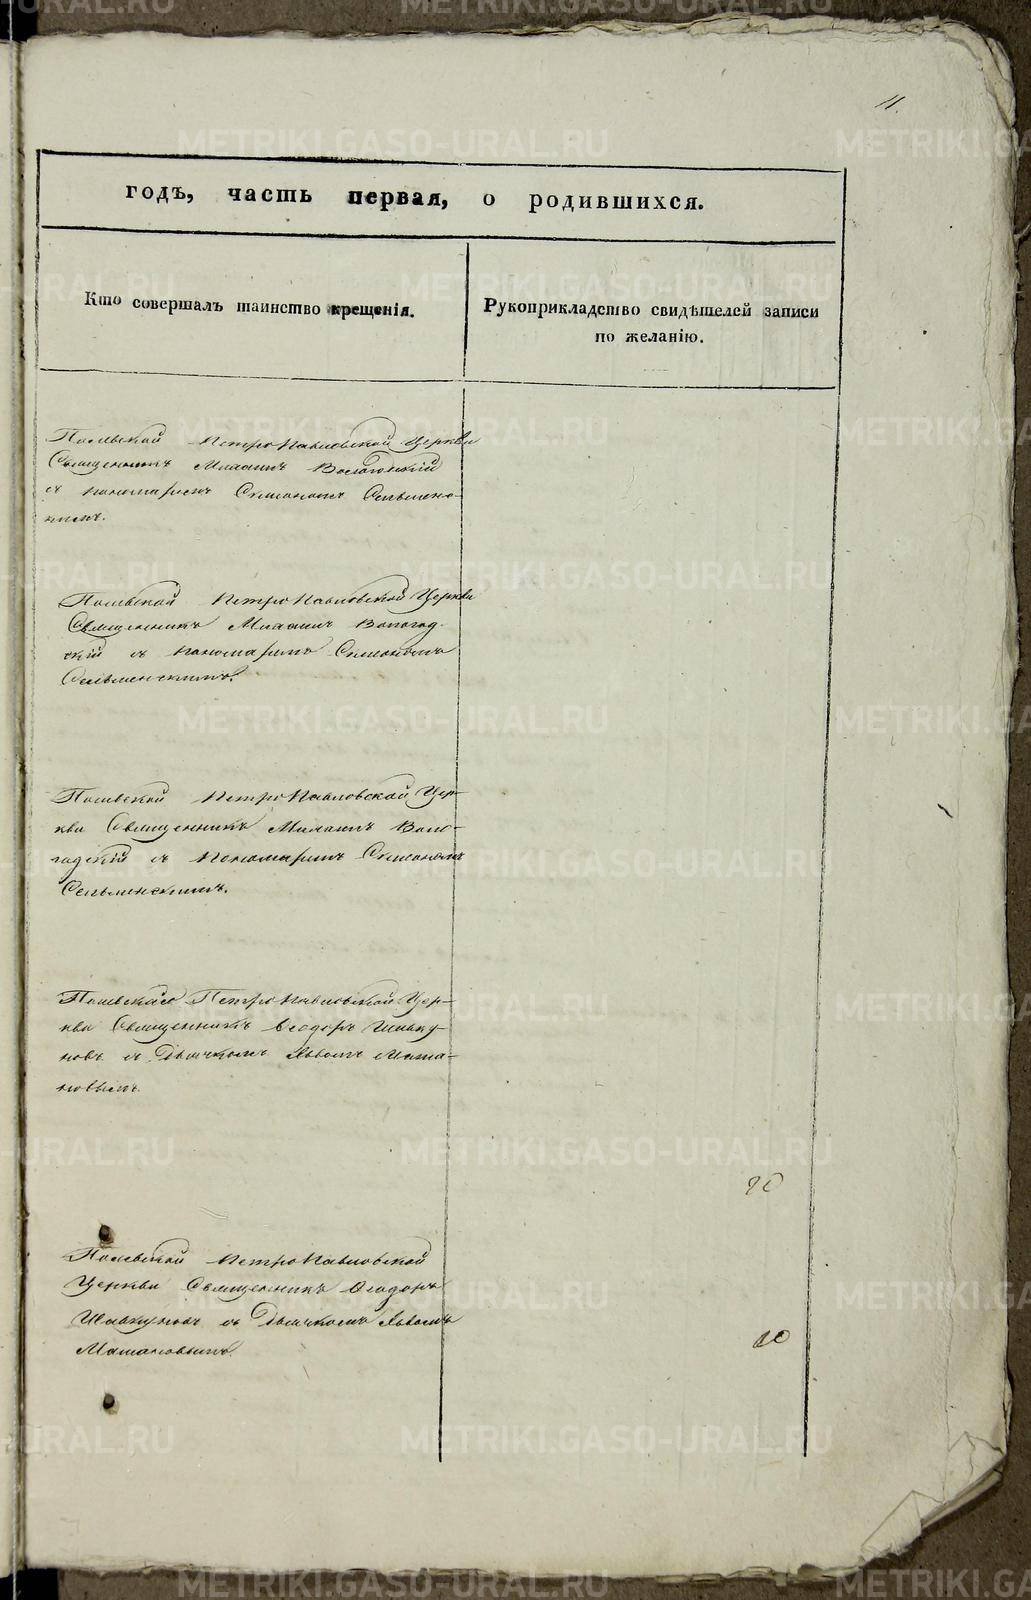 11.
годъ, часть первая, о родившихся.
Кто совершалъ таинство крещенія.
Рукоприкладство свидѣтелей записи
по желанію.
Полевской Петропавловской Церкви
Священникъ Михаилъ Вологодскій
съ пономаремъ Симеономъ Сельменс-
кимъ.
Полевской Петропавловской Церкви
Священникъ Михаилъ Вологод-
скій съ пономаремъ Симеономъ
Сельменскимъ.
Полевской Петропавловской Цер-
кви Священникъ Михаилъ Воло-
годскій съ пономаремъ Симеономъ
Сельменскимъ.
Полевской Петропавловской Цер-
кви Священникъ Ѳеодоръ
новъ съ Дьячкомъ
новымъ
Полевской Петропавловской
Церкви Священникъ Ѳеодоръ
съ Дьячкомъ
METRIKI.GASO-URAL.RU